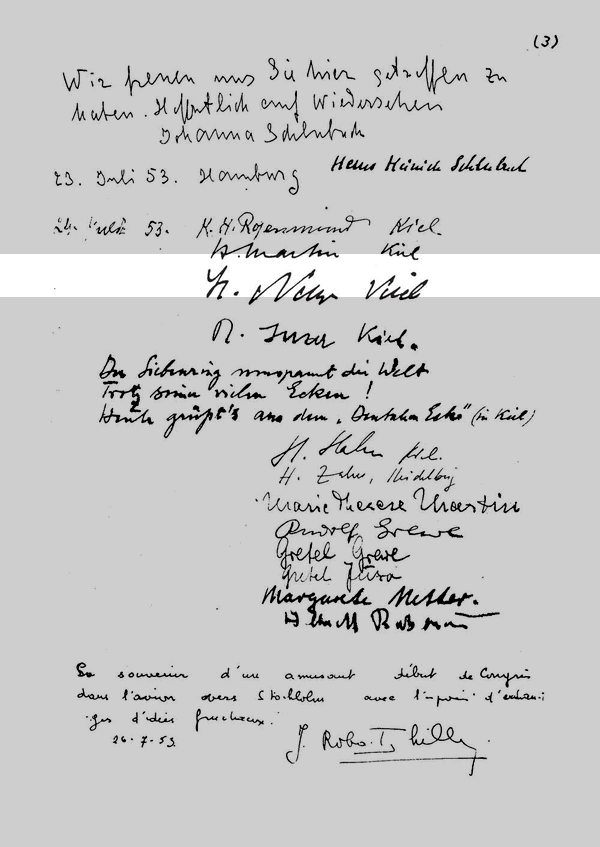 (3)
Wir freuen uns Sie hier getroffen zu
haben. Hoffentlich auf Wiedersehen
Johanna Schlubach
Hans Heinrich Schlubach
23. Juli 53. Hamburg
24. Juli 53. K. H. Kiel.
H. Martin Kiel
H. Kiel
R. Kiel.
Der Siebenring umspannt die Welt
Trotz seiner vielen Ecken!
Heute grüßt's aus dem "Deutschen Eck" (in Kiel)
H. Hahn Kiel.
H. Zahn, Heidelberg
Marie Therese Martin
Rudolf Grewe
Gretel Grewe
Gretel
Margarete
En souvenir d'un amusant début de Congrès
dans l'avion vers Stockholm avec l'espoir d'échan-
ges d'idées fructueux.
26-7-53
J.